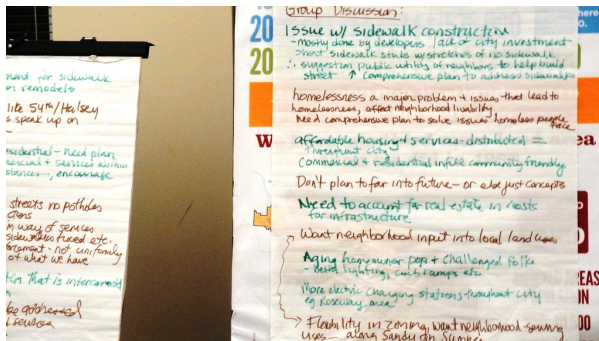 ment for sidewalk
remodels
like 54th/Halsey
speak up on
residential - need plan
services within
encourage
streets no potholes
way of services
sidewalks fused etc.
not uniformly
of what we have
that is interconnected
be addressed
services
20
20
W
Group Discussion:
Issue w/ sidewalk construction
- mostly done by developers / lack of city investment
short sidewalk stubs w/ stretches of no sidewalk
∴ suggestion public utility of neighbors to help build
street ↑ comprehensive plan to address sidewalks
homelessness a major problem + issues that lead to
homelessness, affect neighborhood livability
Need comprehensive plan to solve issues homeless people
face
affordable housing + services distributed =
throughout city
Commercial + residential infill community friendly
Don't plan to far into future - or else just concepts
Need to account for real estate in costs
for infrastructure
Want neighborhood input into local land uses
Aging homeowner pop + challenged folks
- need lighting, curb ramps etc
More electric charging stations throughout city
eg roseway area
Flexibility in zoning, want neighborhood serving
uses - along Sandy
here
to
ea
REAS
ON
00